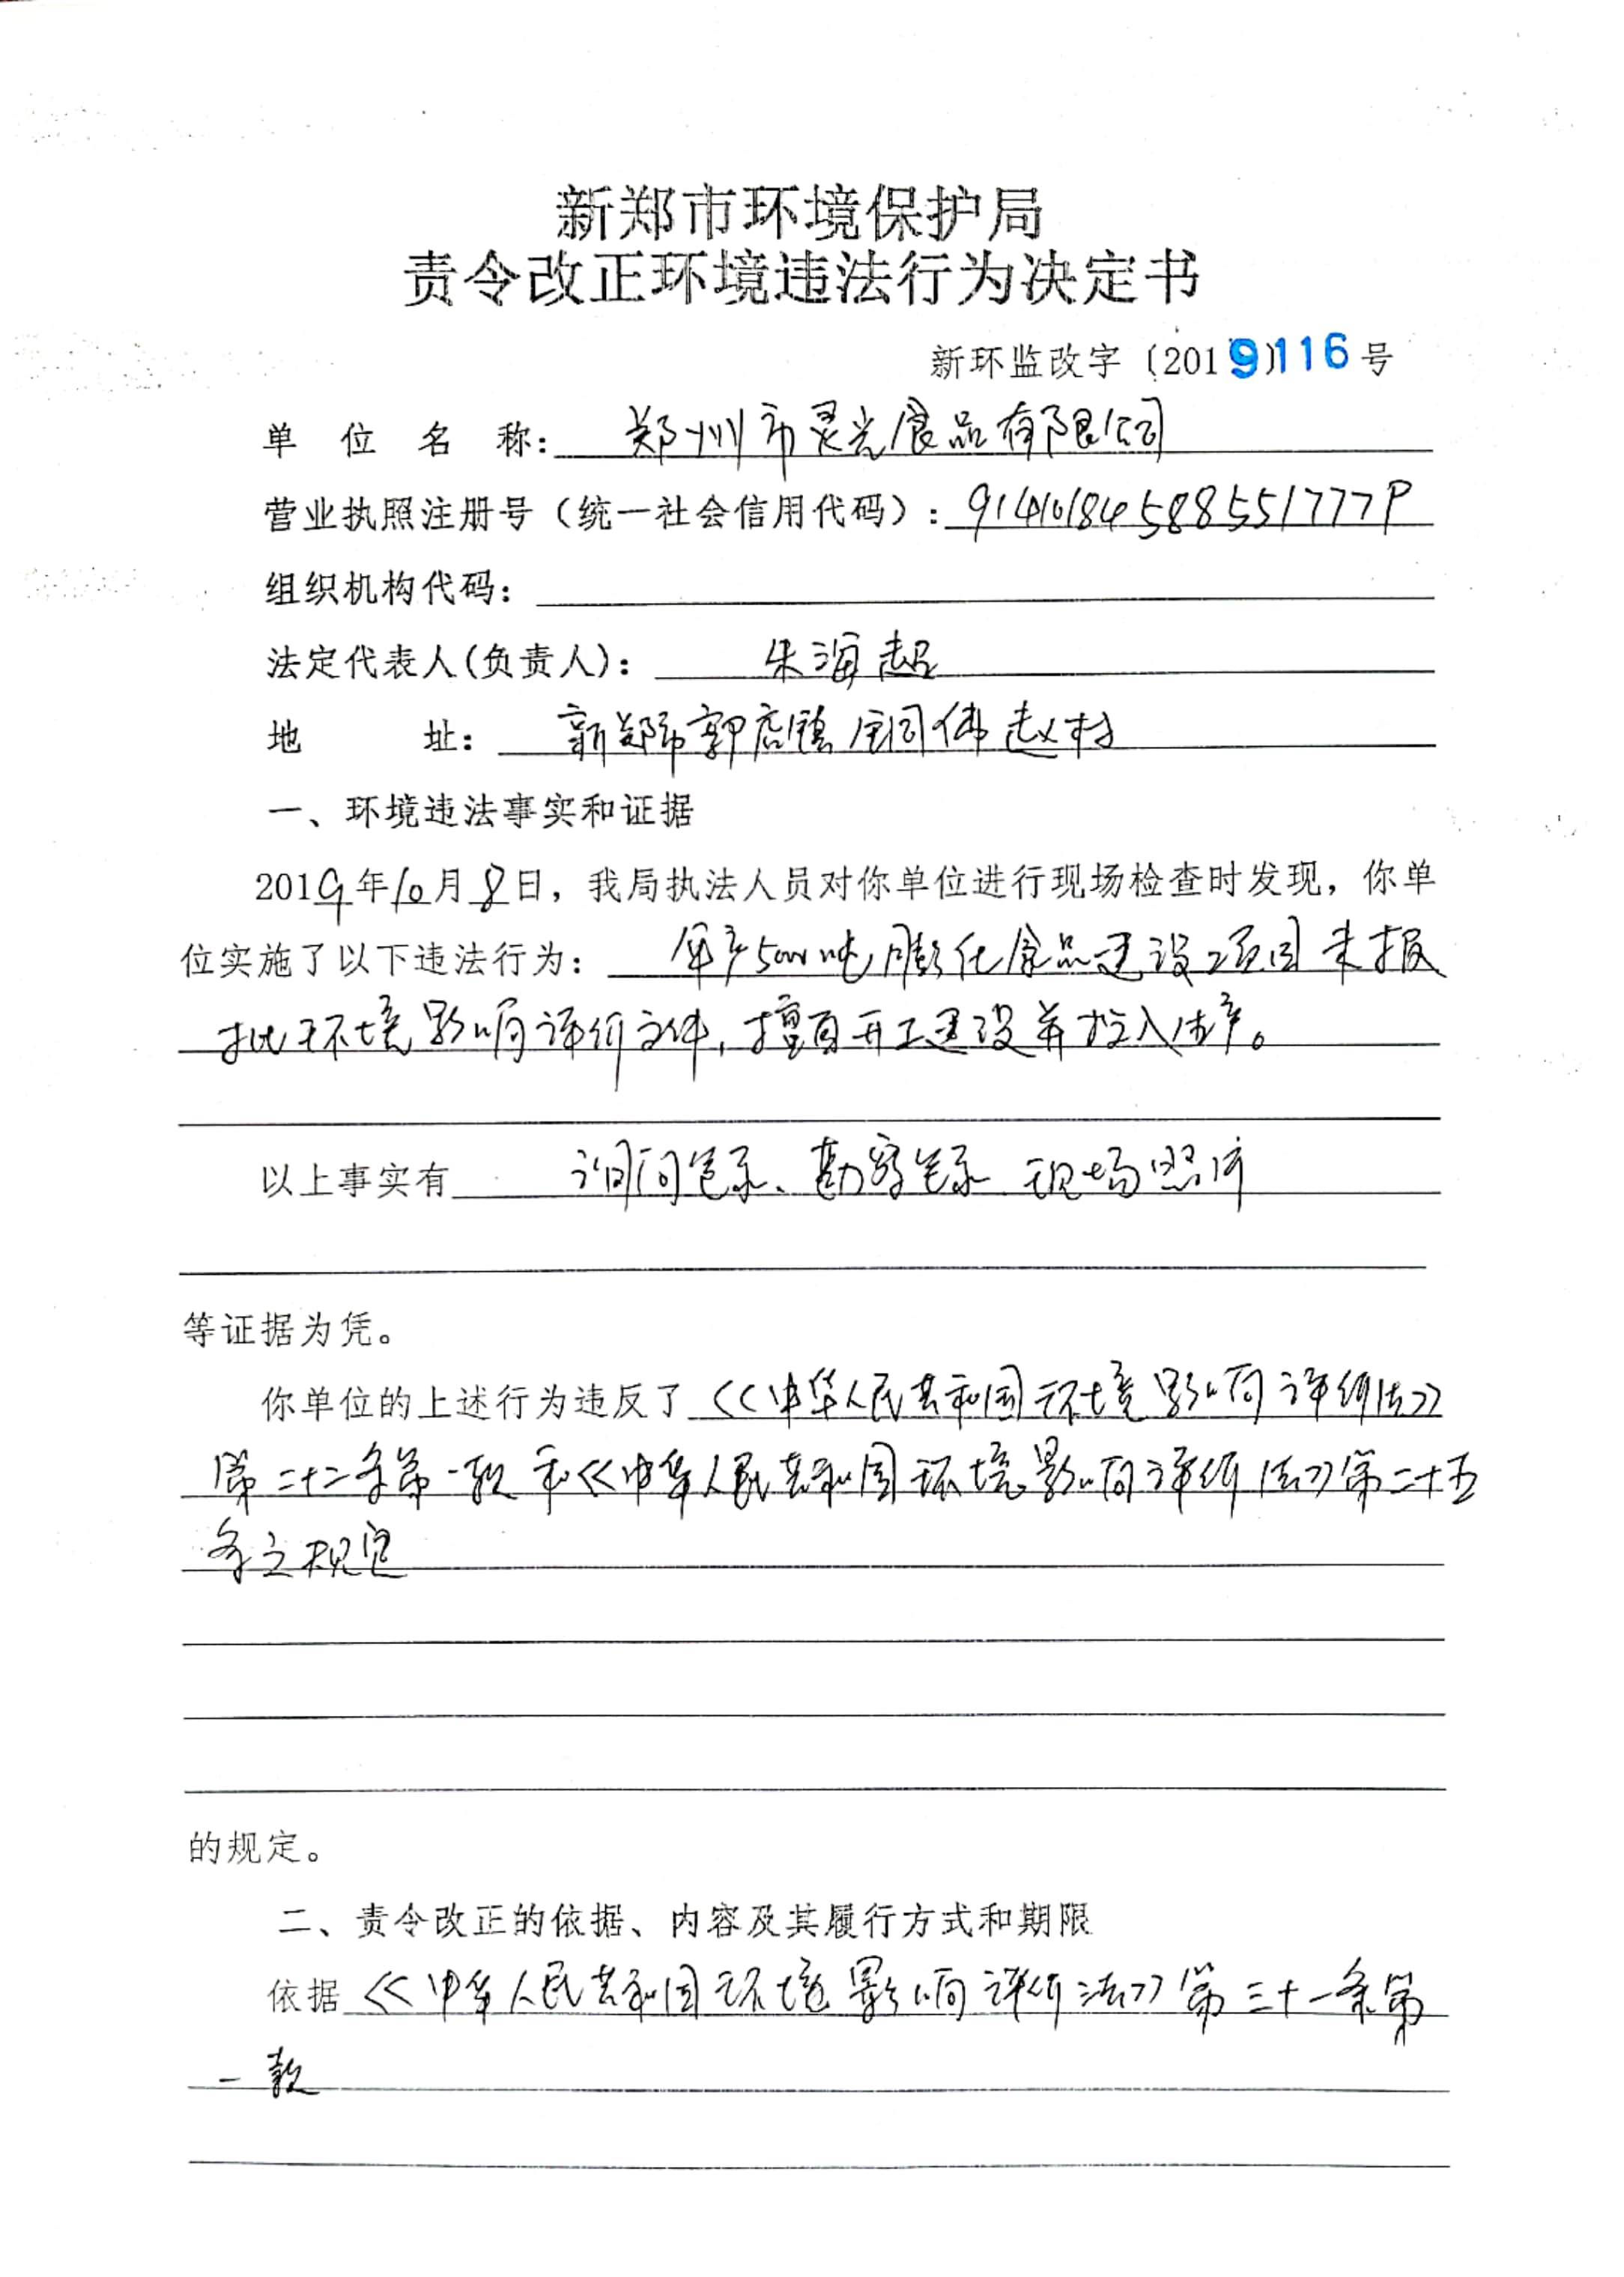 新郑市环境保护局
责令改正环境违法行为决定书
新环监改字〔2019〕116号
单位名称：郑州市灵光食品有限公司
营业执照注册号（统一社会信用代码）：91410184588551777P
组织机构代码：
法定代表人(负责人)：朱海超
地址：新郑市郭店镇 赵村
一、环境违法事实和证据
2019年10月8日，我局执法人员对你单位进行现场检查时发现，你单
位实施了以下违法行为：年产5000吨膨化食品建设项目未报
批环境影响评价文件，擅自开工建设并投入生产。
以上事实有询问笔录、勘察笔录 现场照片
等证据为凭。
你单位的上述行为违反了《中华人民共和国环境影响评价法》
第二十二条第一款和《中华人民共和国环境影响评价法》第二十五
条之规定
的规定。
二、责令改正的依据、内容及其履行方式和期限
依据《中华人民共和国环境影响评价法》第三十一条第
一款